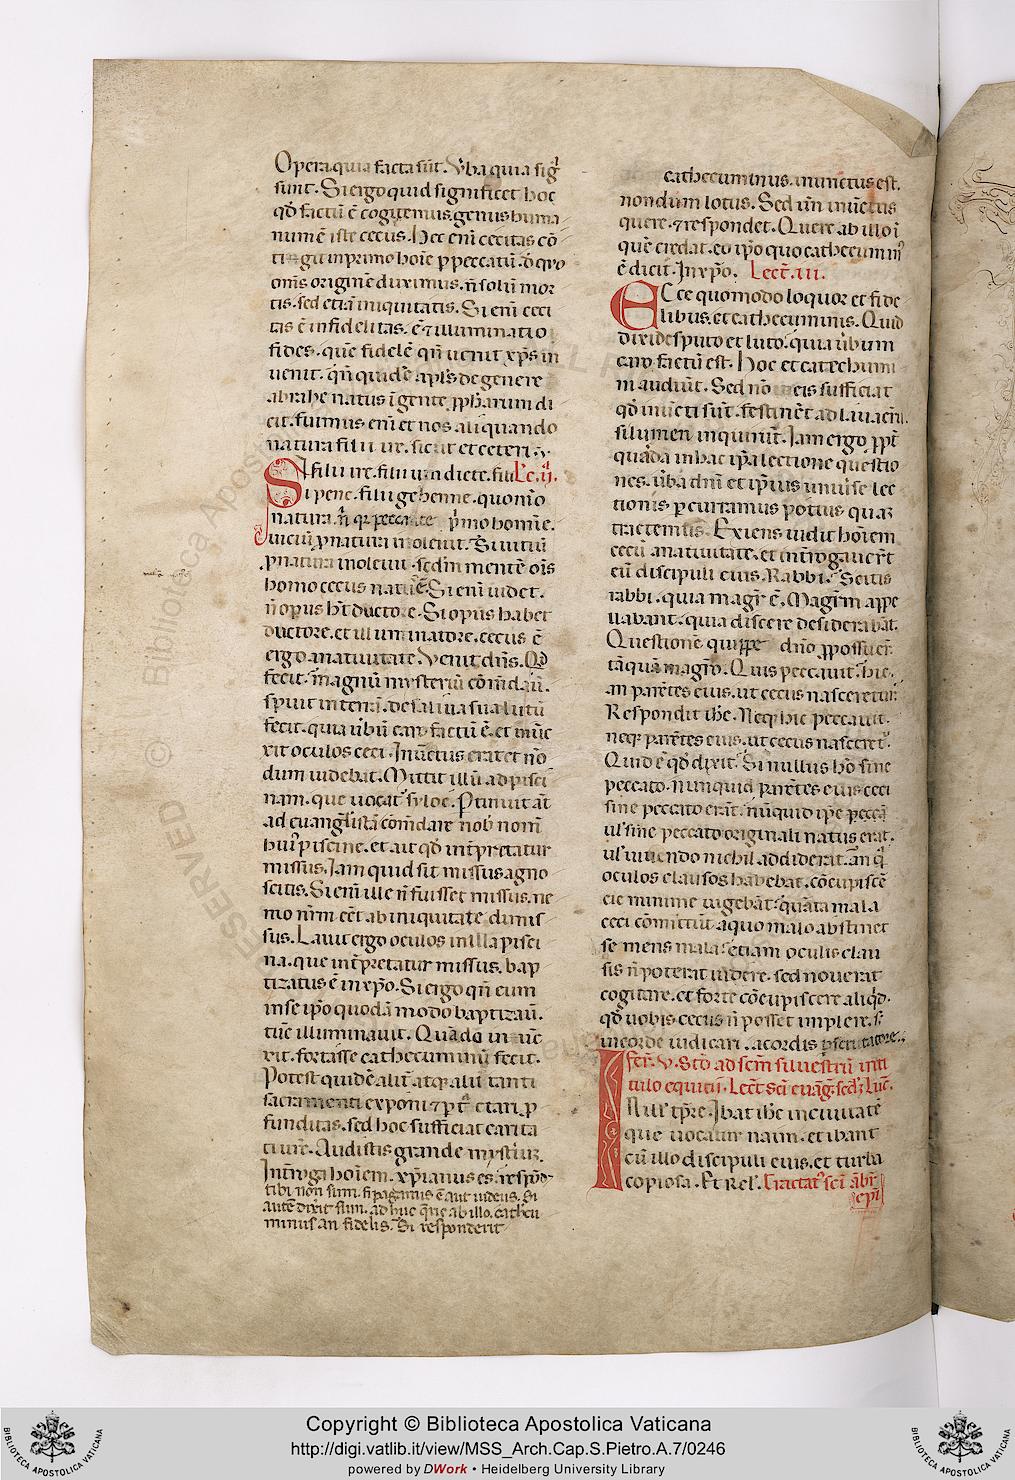 Opera quia facta sūt. Vba quia siḡ
sunt. Si ergo quid significet hoc
qđ factū ē cogitemus, genus huma
num ē iste cecus. Hec enī cecitas cō
tigit in primo hoīe p peccatū. d̄ quo
om̄s originē duximus. n̄ solū mor
tis. sed etiā iniquitatis. Si enī ceci
tas ē infidelitas. ⁊ illuminatio
fides. quē fidelē qn̄ uenit xp̄s in
uenit. qn̄ quidē apl̄s de genere
abrahe natus ī gente ꝓphārum di
cit. fuimus enī et nos aliquando
natura filii ire. sicut et ceteri.
Si filii ire. filii uindicte. filii Lc̄. ij.
pene. filii gehenne. quomo
natura. n̄ qꝫ peccante p̄mo homīe.
uiciū ꝓ natura inoleuit. Si uitiū
ꝓ natura inoleuit. sedm mentē oīs
homo cecus natus ē. Si enī uidet.
n̄ opus ht̄ ductore. Si opus habet
ductore. et illuminatore. cecus ē
ergo a natiuitate. Venit dn̄s. Qđ
fecit. magnū mysteriū cōmdau.
spuit in terrā. de saliua sua lutū
fecit. quia ūbū caro factū ē. et inūc
xit oculos ceci. Inūctus erat et nō
dum uidebat. Mittit illū ad pisci
nam. que uocat̄ syloe. Ptinuit āt
ad euangl̄istā cōm̄dare nob̄ nom̄
huī piscine. et ait qđ int̄pretatur
missus. Iam quid sit missus agno
scitis. Si enī ille n̄ fuisset missus. ne
mo nr̄m eēt ab iniquitate dimis
sus. Lauit ergo oculos in illa pisci
na. que int̄pretatur missus. bap
tizatus ē in xp̄o. Si ergo qn̄ eum
in se ip̄o quodā modo baptizau.
tūc illuminauit. Quādo inunc
xit. fortasse cathecuminū fecit.
Potest quidē alit̄ atqꝫ alit̄ tanti
sacramenti exponi ⁊ ptctari ꝓ
funditas. sed hoc sufficiat carita
ti uīe. Audistis grande mystiū.
Int̄roga hoīem. xp̄ianus es. respōd̄
tibi non sum. si paganus ē aut iudeus. Si
autē dixit sum. adhuc q̄ris ab illo. cathcu
minus an fidelis. Si responderit
cathecuminus. inunctus est.
nondum lotus. Sed un̄ inūctus
quere. ⁊ respondet. Quere ab illo ī
quē credat. eo ip̄o quo cathecumin
ē dicit. In xp̄o. Lect̄. iii.
Ecce quomodo loquor et fide
libus. et cathecuminis. Quid
dixi de sputo et luto. quia ūbum
caro factū est. Hoc et catechumi
ni audiūt. Sed nō eis sufficiat
qđ inūcti sūt. festinēt ad lauachr̄.
si lumen inquirūt. Iam ergo ꝓpt
quādā in hac ip̄a lectione questio
nes. ūba dn̄i et ip̄ius uniuīse lec
tionis pcurramus potius quaꝫ
tractemus. Exiens uidit hoīem
cecū a natiuitate. et int̄rogauert̄
eū discipuli eius. Rabbi. Scitis
rabbi. quia magr̄ ē. Magr̄m appe
llabant. quia discere desiderabāt.
Questionē quippe dn̄o ꝓposuert̄.
tāquā magr̄o. Quis peccauit. hic.
an parētes eius. ut cecus nasceretur.
Respondit ih̄c. Neqꝫ hic peccauit.
neqꝫ parētes eius. ut cecus nasceret̄.
Quid ē qđ dixit. Si nullus hō sine
peccato. nunquid parētes eius ceci
sine peccato erāt. nūquid ip̄e peccā
ul̄ sine peccato originali natus erat.
ul̄ uiuendo nichil addiderat. an q̄
oculos clausos habebat. cōcupiscē
cie minime uigebāt. quāta mala
ceci cōmittūt. a quo malo abstinet
se mens mala. etiam oculis clau
sis n̄ poterat uidere. sed nouerat
cogitare. et forte cōcupiscere aliqd̄.
qđ uobis cecus n̄ posset implere. s;
in corde iudicari. a cordis pscrutatore.
fer̄. v. Stō ad scm̄ siluestrū in ti
tulo equitii. Lect̄ sci euāg. sedꝫ Luc̄.
In illꝉ tp̄re. Ibat ih̄c in ciuitatē
que uocatur naim. et ibant
cū illo discipuli eius. et turba
copiosa. Et Rel̄. Tractat̄ sci ābr̄
ep̄i
Copyright © Biblioteca Apostolica Vaticana
http://digi.vatlib.it/view/MSS_Arch.Cap.S.Pietro.A.7/0246
powered by DWork • Heidelberg University Library